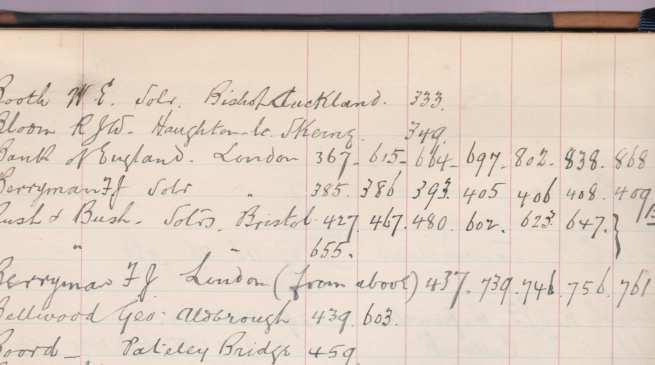 Booth W E. Solr. Bishop Auckland. 333.
Bloom R J W. Haughton-le-Skerne. 349.
Bank of England. London 367. 615. 664. 697. 802. 838. 868
Berryman F J Solr " 385. 386 393. 405 406 408. 409
Bush & Bush. Solrs. Bristol. 427. 467. 480. 602. 623. 647. }
" " 655.
Berryman F J. London (from above) 437. 739. 746. 756. 761
Bellwood Geo. Aldbrough 439. 603.
Board — Pateley Bridge 459.